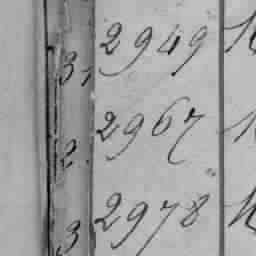 3, 2949
2. 2967
3 2978